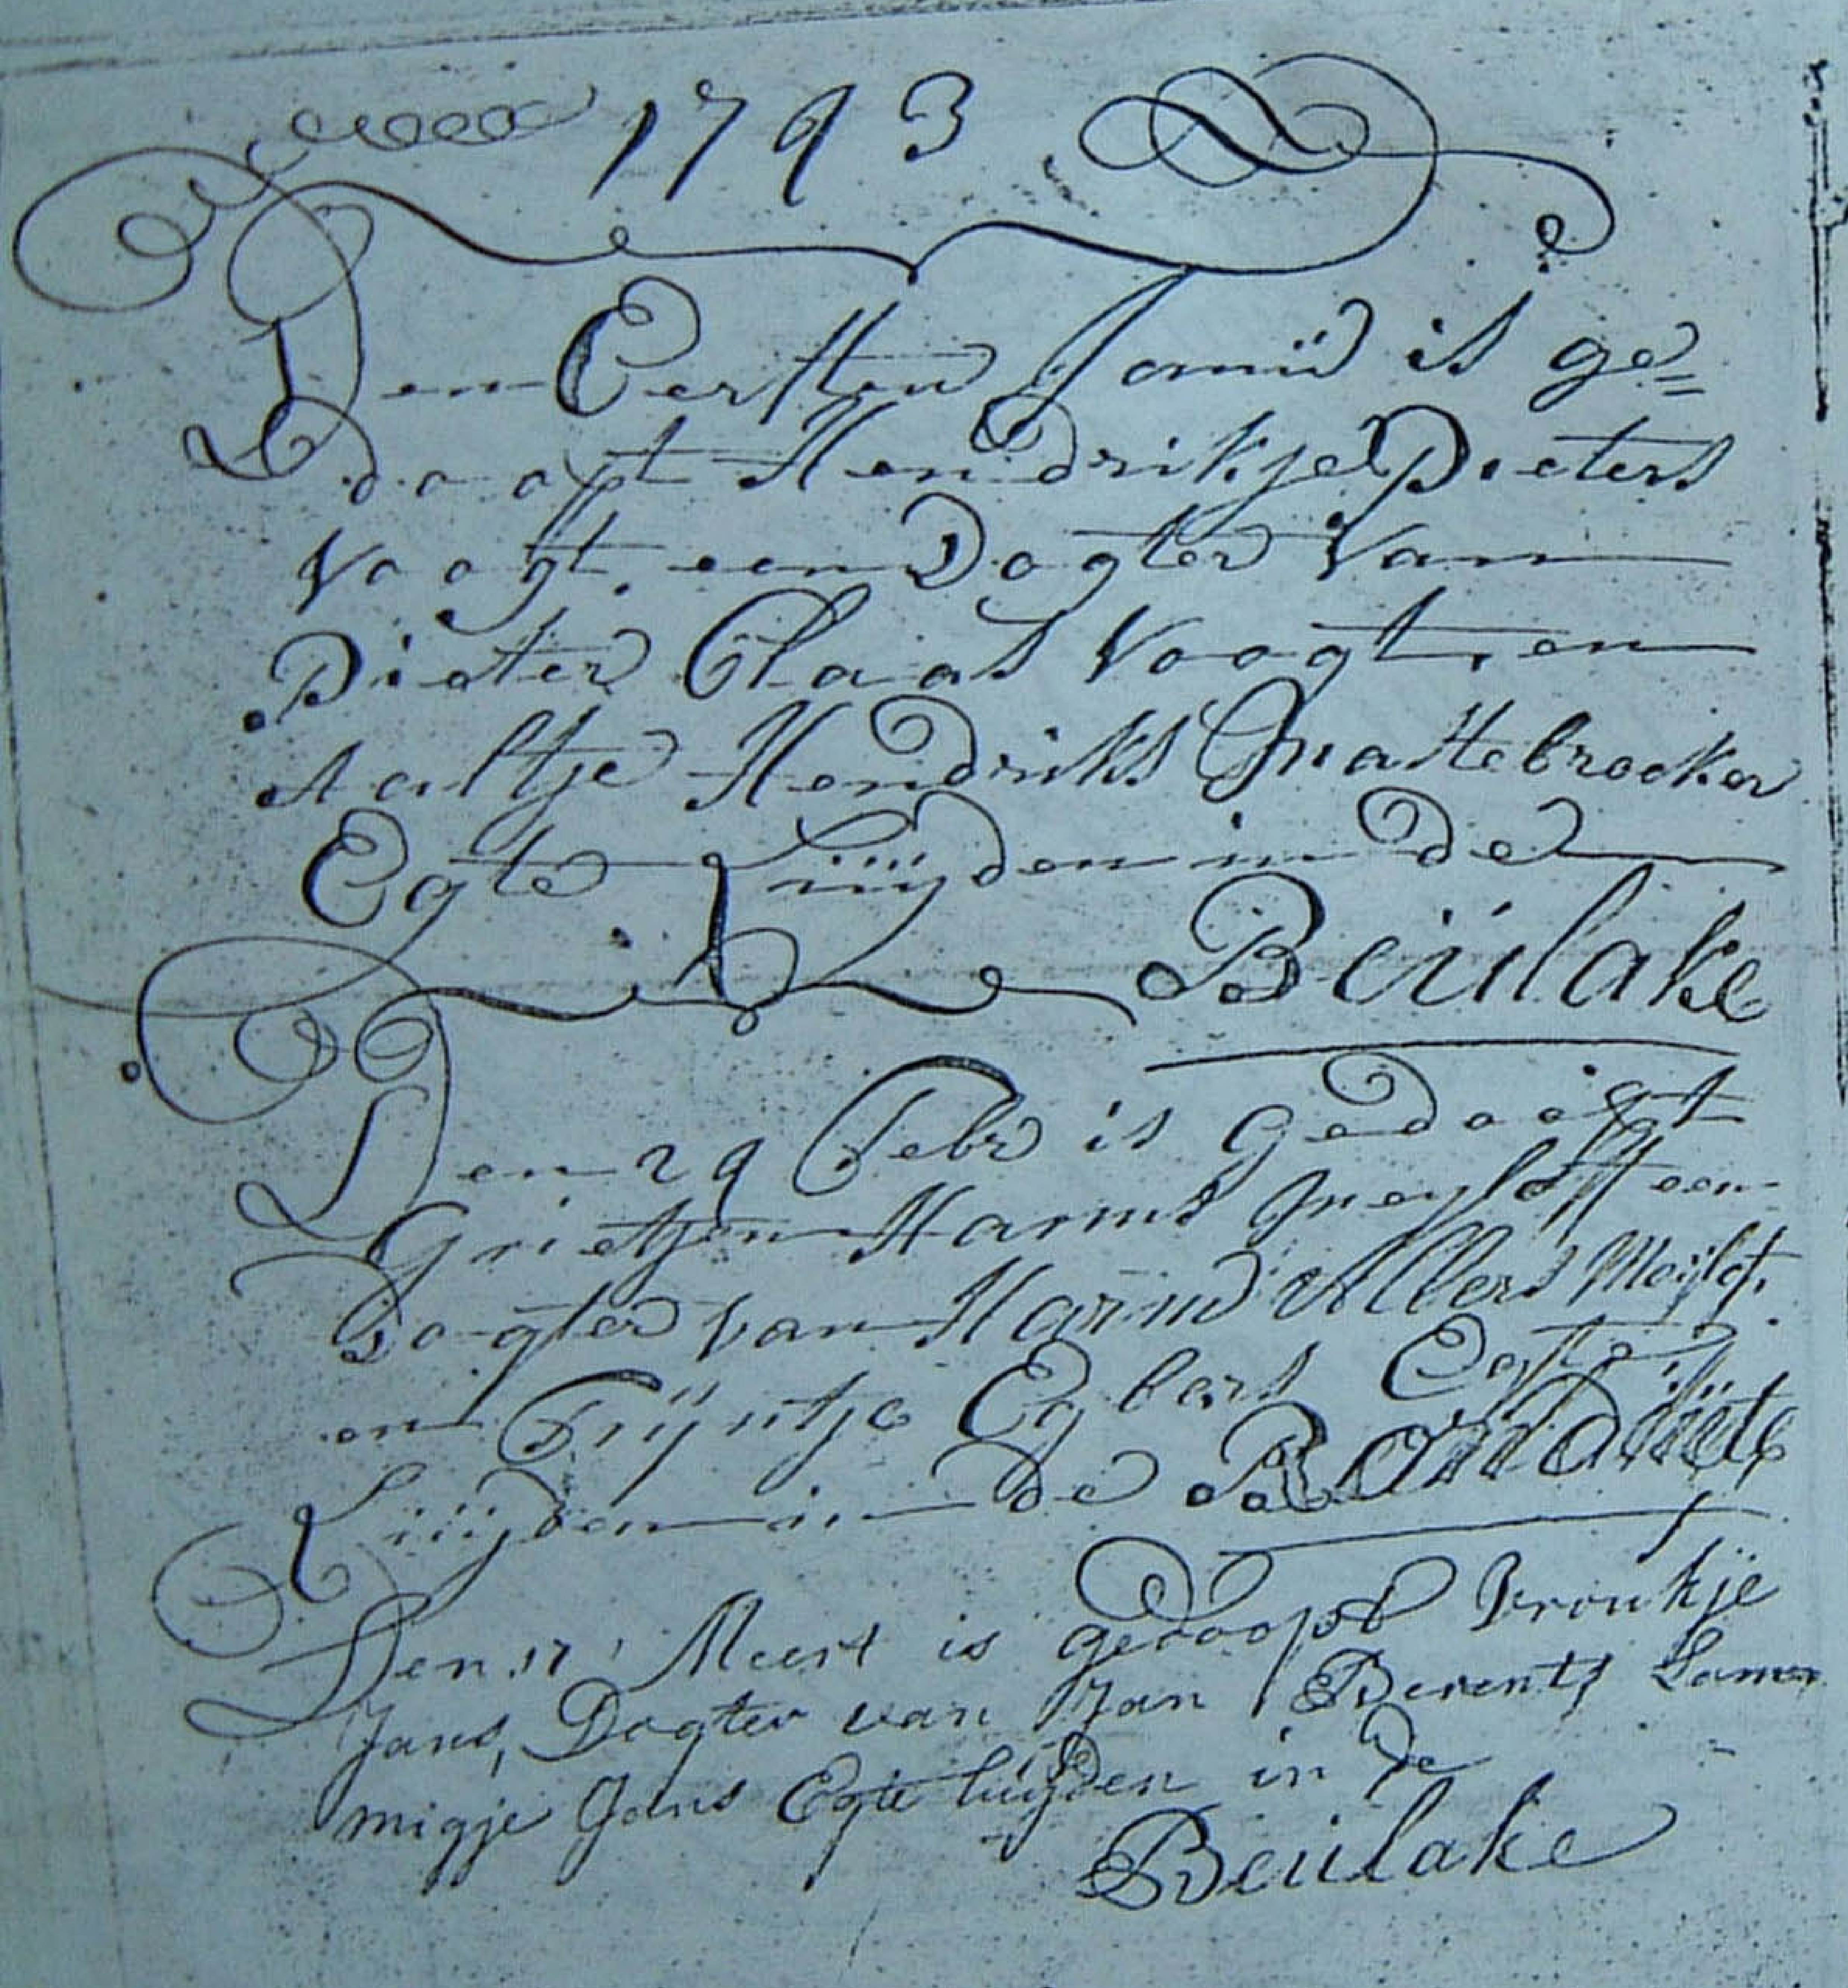 1793
Den Eersten Janüd is ge=
doopt Hendrikje Pieters
Voogt, een Dogter van
Pieter Claas Voogt, en
Aaltje Hendriks Mastebroeker
Egte Lüijden in de
Beülake
Den 29 Febr is Gedoopt
Grietjen Harms Meyloft een
Dogter van Harm Albers Meijlof.
en Trijntje Egbers Egte
Lüijden in de Ronduite
Den 17 Meert is gedoopt Vroukje
Jans, Dogter van Jan Berents Lam
migje Jans Egte luijden in de
Beülake